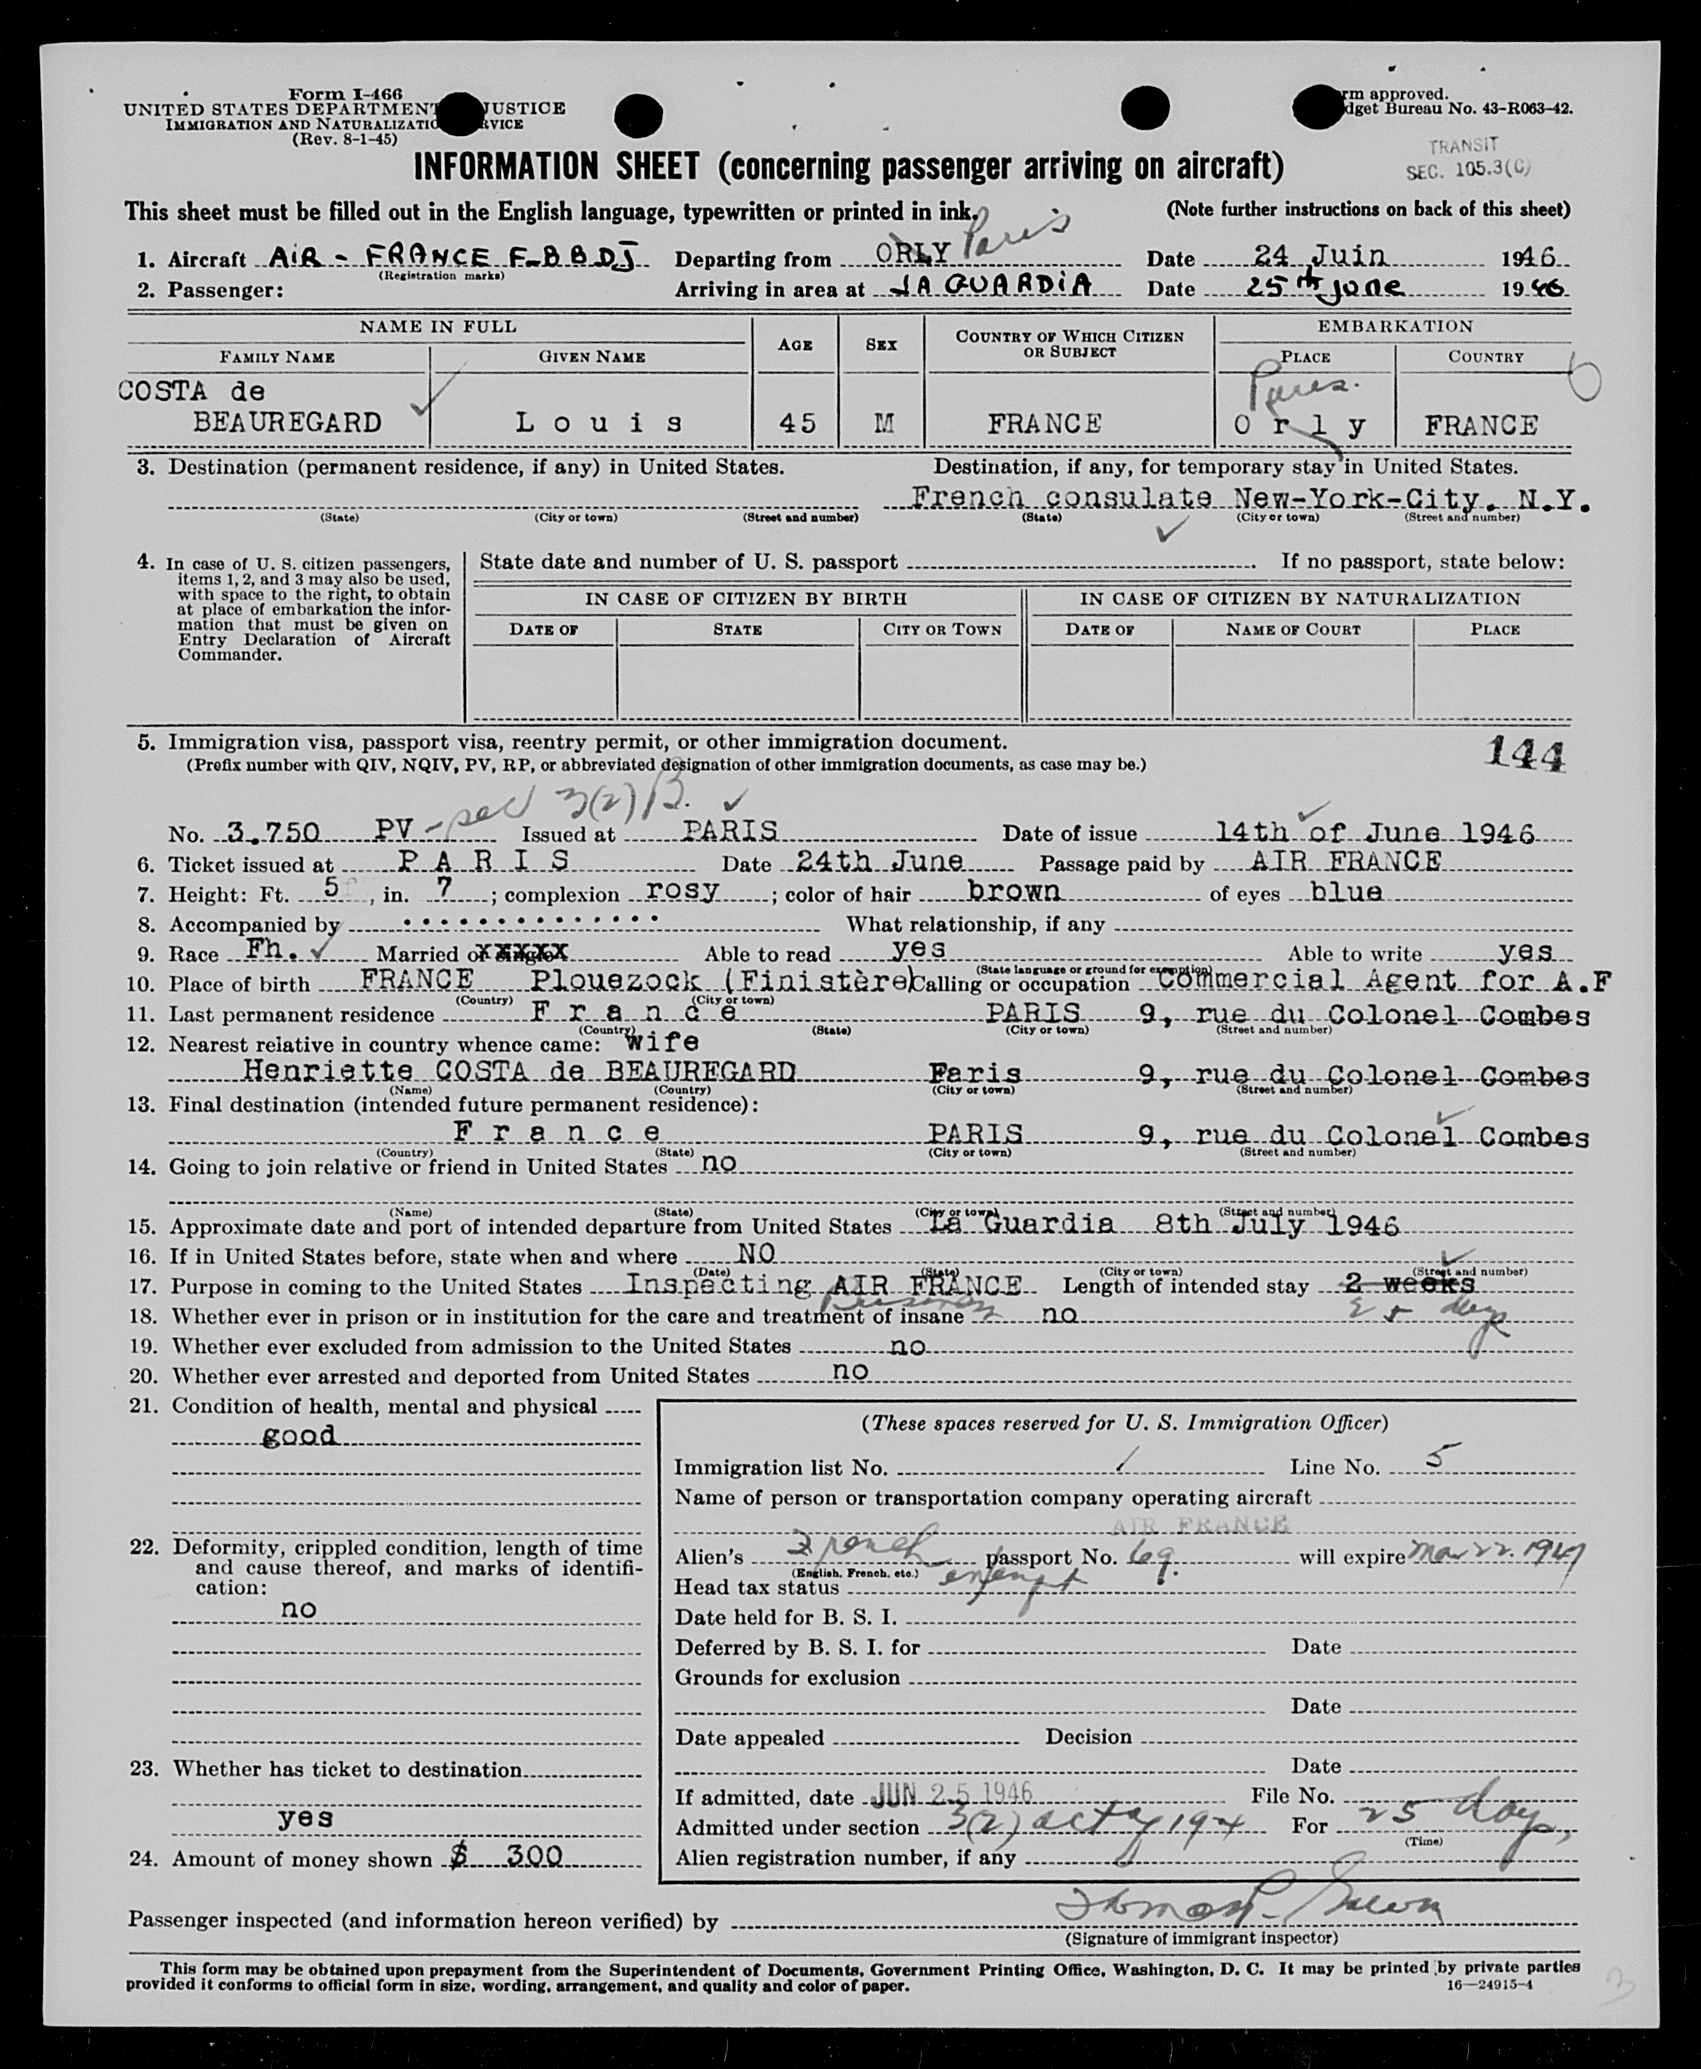 Form I-466
UNITED STATES DEPARTMENT JUSTICE
IMMIGRATION AND NATURALIZATIO RVICE
(Rev. 8-1-45)
rm approved.
dget Bureau No. 43-R063-42.
TRANSIT
SEC. 105.3(C)
INFORMATION SHEET (concerning passenger arriving on aircraft)
This sheet must be filled out in the English language, typewritten or printed in ink. (Note further instructions on back of this sheet)
1. Aircraft AIR - FRANCE F-BBDJ Departing from ORLY Paris Date 24 Juin 1946
(Registration marks)
2. Passenger: Arriving in area at LA GUARDIA Date 25th june 1946
NAME IN FULL AGE SEX COUNTRY OF WHICH CITIZEN OR SUBJECT EMBARKATION
FAMILY NAME GIVEN NAME PLACE COUNTRY
COSTA de Paris.
BEAUREGARD Louis 45 M FRANCE Orly FRANCE
3. Destination (permanent residence, if any) in United States. Destination, if any, for temporary stay in United States.
French consulate New-York-City. N.Y.
(State) (City or town) (Street and number) (State) (City or town) (Street and number)
4. In case of U. S. citizen passengers, items 1, 2, and 3 may also be used, with space to the right, to obtain at place of embarkation the information that must be given on Entry Declaration of Aircraft Commander.
State date and number of U. S. passport If no passport, state below:
IN CASE OF CITIZEN BY BIRTH IN CASE OF CITIZEN BY NATURALIZATION
DATE OF STATE CITY OR TOWN DATE OF NAME OF COURT PLACE
5. Immigration visa, passport visa, reentry permit, or other immigration document. 144
(Prefix number with QIV, NQIV, PV, RP, or abbreviated designation of other immigration documents, as case may be.)
No. 3.750 PV - sec 3(2)B. Issued at PARIS Date of issue 14th of June 1946
6. Ticket issued at PARIS Date 24th June Passage paid by AIR FRANCE
7. Height: Ft. 5, in. 7; complexion rosy; color of hair brown of eyes blue
8. Accompanied by What relationship, if any
9. Race Fh. Married or xxxxx Able to read yes Able to write yes
(State language or ground for exemption)
10. Place of birth FRANCE Plouezock (Finistère) Calling or occupation Commercial Agent for A.F
(Country) (City or town)
11. Last permanent residence France PARIS 9, rue du Colonel Combes
(Country) (State) (City or town) (Street and number)
12. Nearest relative in country whence came: Wife
Henriette COSTA de BEAUREGARD Paris 9, rue du Colonel Combes
(Name) (Country) (City or town) (Street and number)
13. Final destination (intended future permanent residence):
France PARIS 9, rue du Colonel Combes
(Country) (State) (City or town) (Street and number)
14. Going to join relative or friend in United States no
(Name) (State) (City or town) (Street and number)
15. Approximate date and port of intended departure from United States La Guardia 8th July 1946
16. If in United States before, state when and where NO
(Date) (State) (City or town) (Street and number)
17. Purpose in coming to the United States Inspecting AIR FRANCE Length of intended stay 2 weeks
Business 25 days
18. Whether ever in prison or in institution for the care and treatment of insane no
19. Whether ever excluded from admission to the United States no
20. Whether ever arrested and deported from United States no
21. Condition of health, mental and physical
good
22. Deformity, crippled condition, length of time and cause thereof, and marks of identification:
no
23. Whether has ticket to destination
yes
24. Amount of money shown $ 300
(These spaces reserved for U. S. Immigration Officer)
Immigration list No. 1 Line No. 5
Name of person or transportation company operating aircraft
AIR FRANCE
Alien's French passport No. 69. will expire Mar 22. 1947
(English, French, etc.)
Head tax status exempt
Date held for B. S. I.
Deferred by B. S. I. for Date
Grounds for exclusion
Date
Date appealed Decision
Date
If admitted, date JUN 25 1946 File No.
Admitted under section 3(2) act of 1924 For 25 days
(Time)
Alien registration number, if any
Passenger inspected (and information hereon verified) by
(Signature of immigrant inspector)
This form may be obtained upon prepayment from the Superintendent of Documents, Government Printing Office, Washington, D. C. It may be printed by private parties
provided it conforms to official form in size, wording, arrangement, and quality and color of paper. 16—24915-4
3